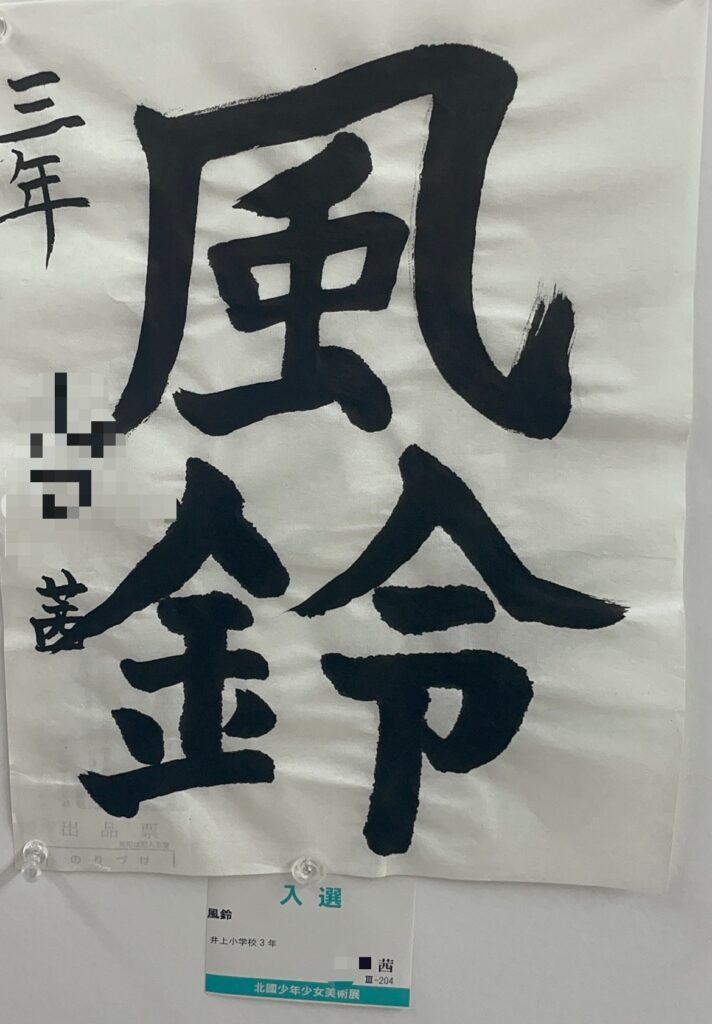 風鈴
三年
茜
出品票
のりづけ
入選
風鈴
井上小学校3年
茜
Ⅲ-204
北國少年少女美術展